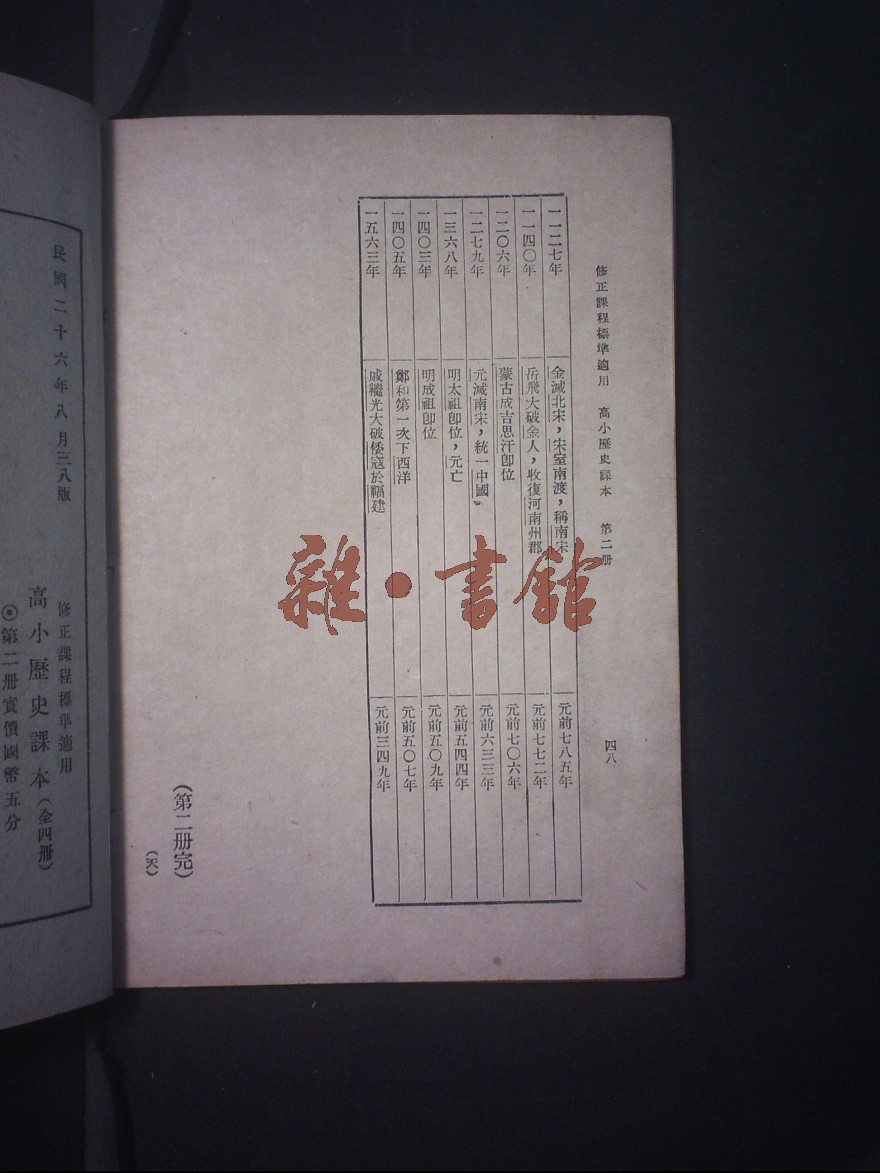 修正課程標準適用　高小歷史課本　第二册　四八
一一二七年　金滅北宋，宋室南渡，稱南宋　元前七八五年
一一四〇年　岳飛大破金人，收復河南州郡　元前七七二年
一二〇六年　蒙古成吉思汗卽位　元前七〇六年
一二七九年　元滅南宋，統一中國。　元前六三三年
一三六八年　明太祖卽位，元亡　元前五四四年
一四〇三年　明成祖卽位　元前五〇九年
一四〇五年　鄭和第一次下西洋　元前五〇七年
一五六三年　戚繼光大破倭寇於福建　元前三四九年
（第二册完）
（天）
雜・書館
民國二十六年八月三八版
修正課程標準適用
高小歷史課本（全四册）
⦿第二册實價國幣五分